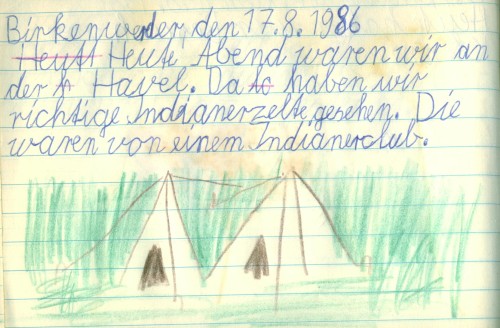 Birkenwerder, den 17.8.1986
Heute Abend waren wir an
der Havel. Da haben wir
richtige Indianerzelte gesehen. Die
waren von einem Indianerclub.